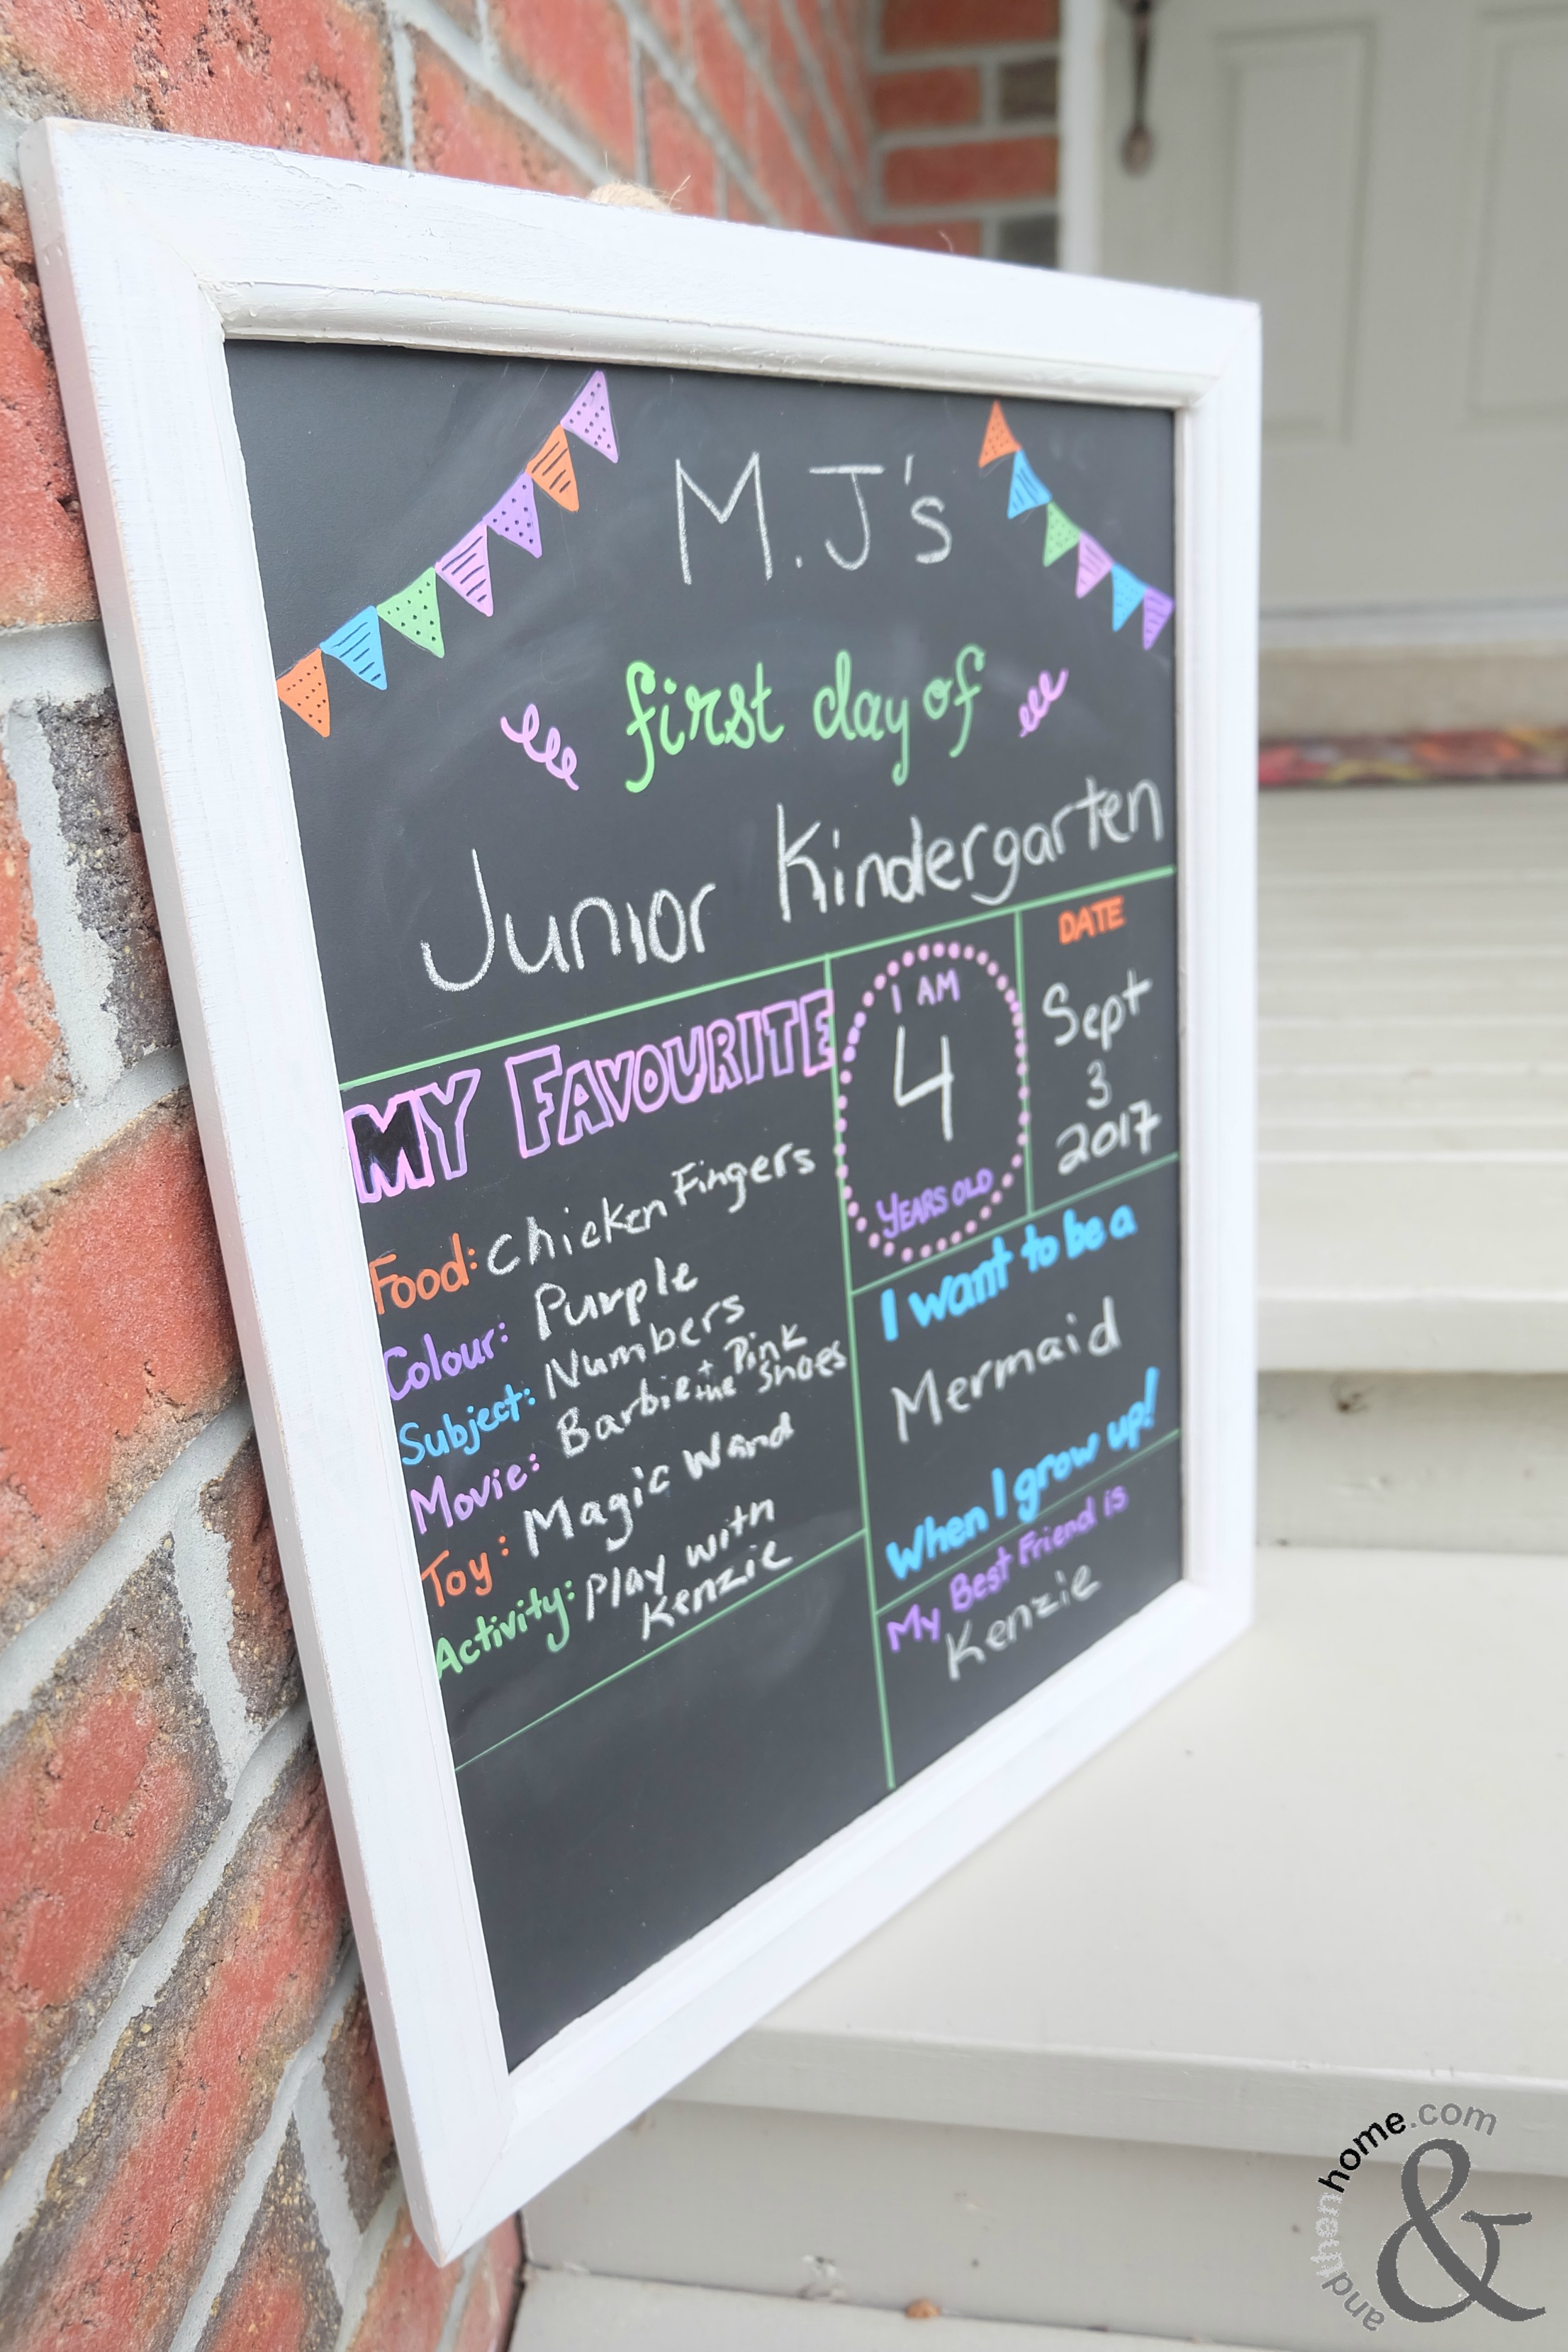 M.J's
first day of
Junior Kindergarten
MY FAVOURITE
Food: Chicken Fingers
Colour: Purple
Subject: Numbers
Movie: Barbie + the Pink Shoes
Toy: Magic Wand
Activity: Play with
Kenzie
I AM
4
YEARS OLD
DATE
Sept
3
2017
I want to be a
Mermaid
When I grow up!
My Best Friend is
Kenzie
andthenhome.com
&